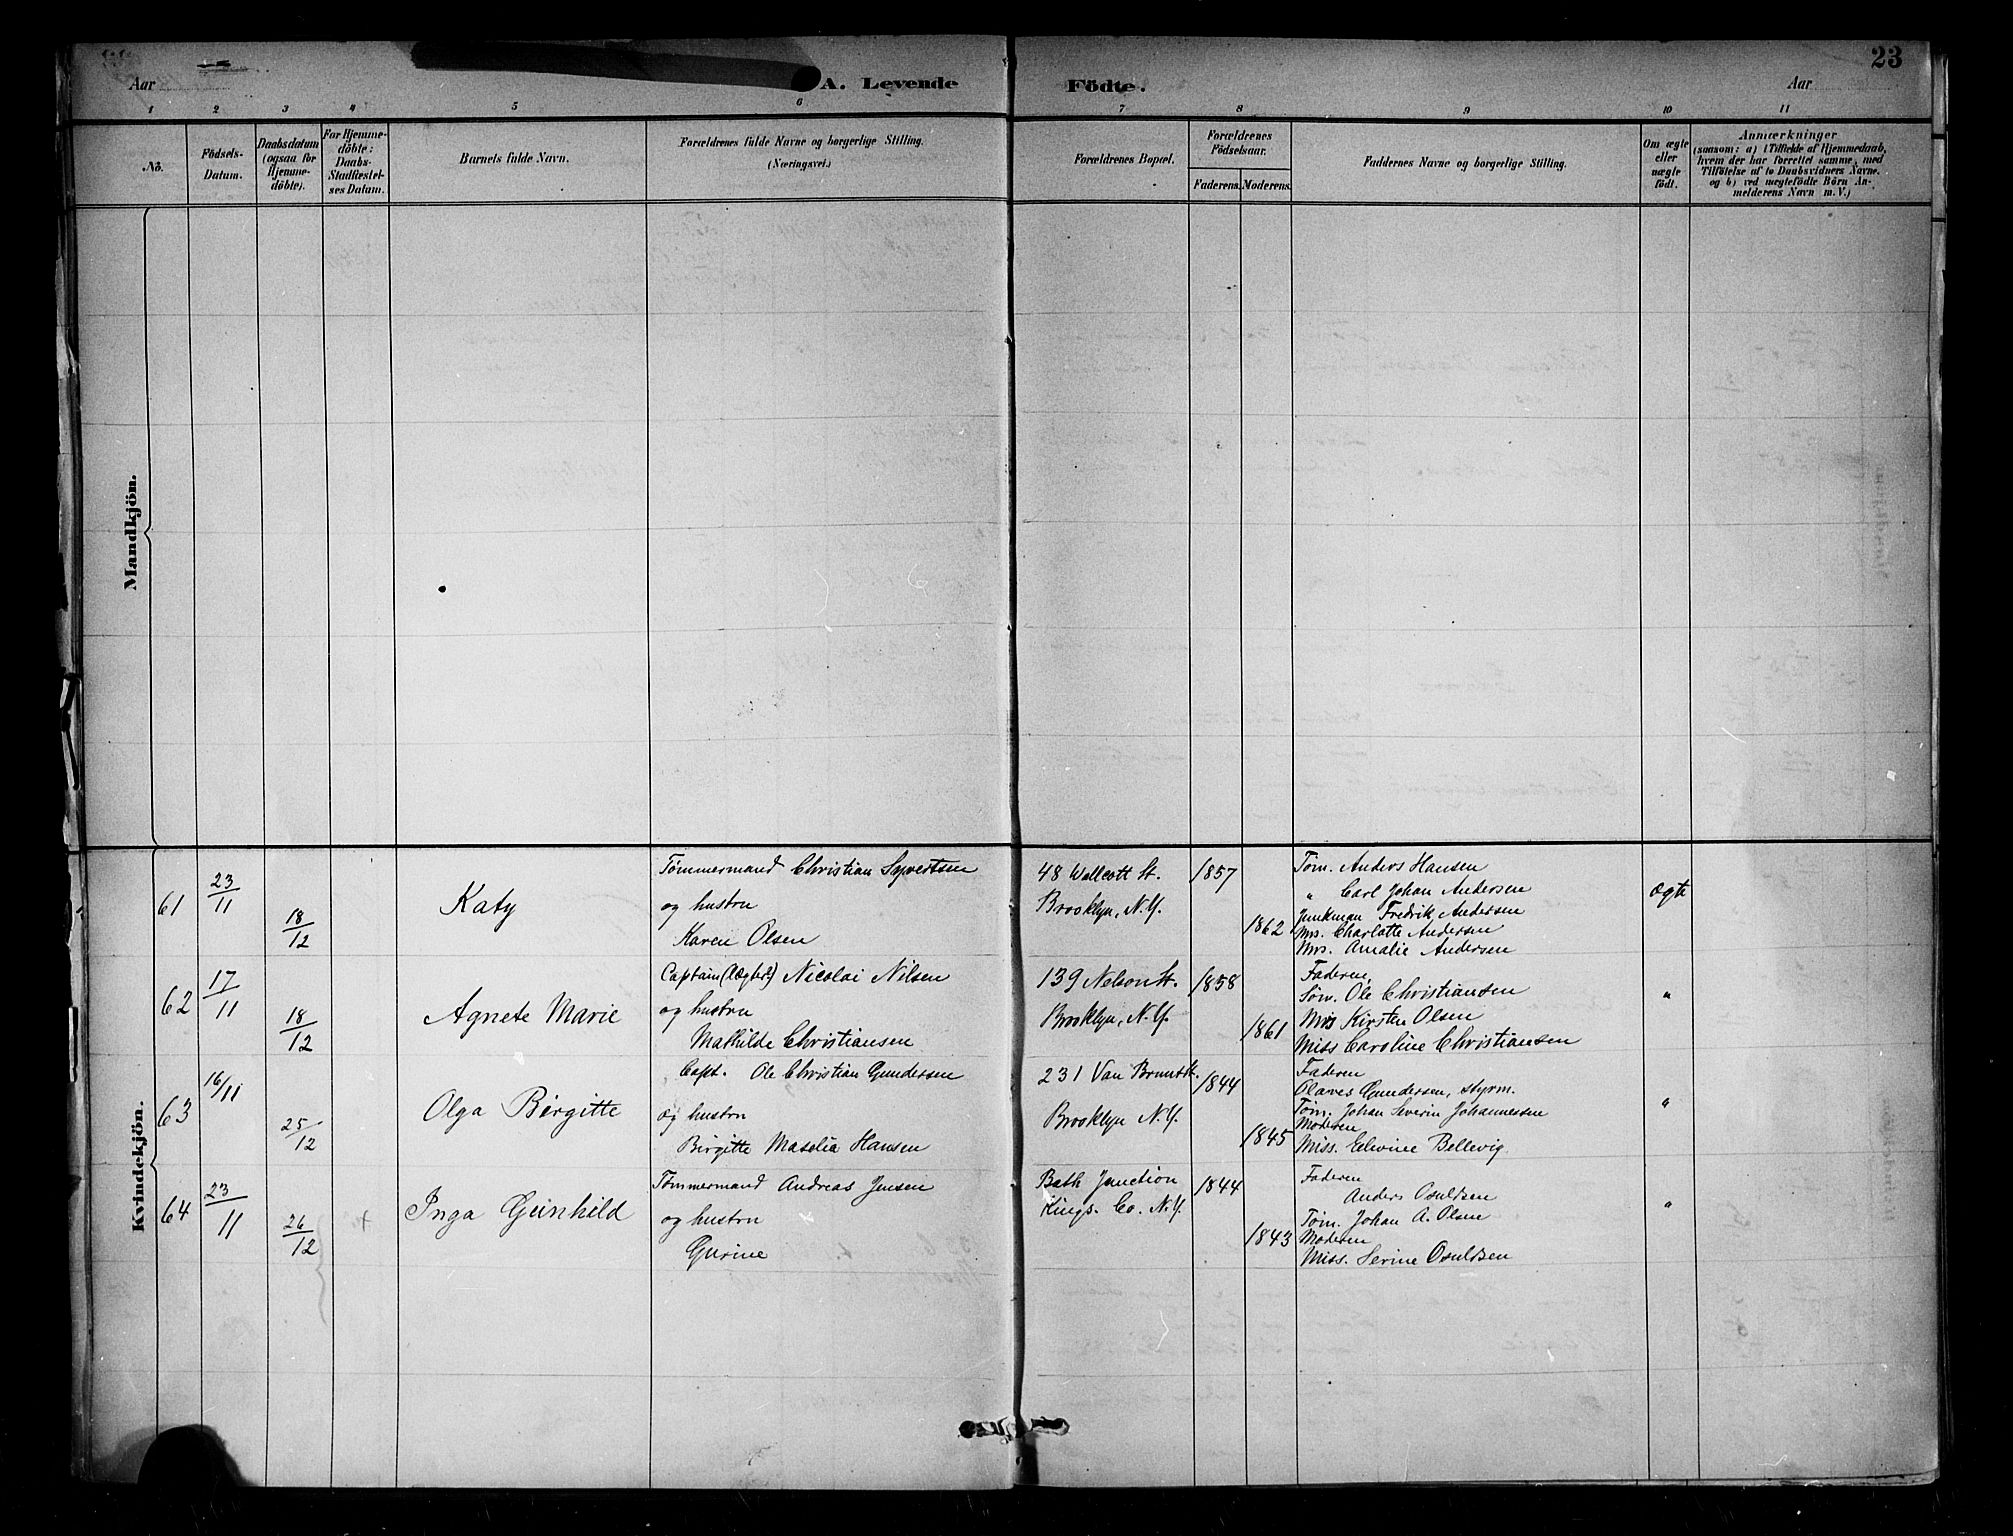 23
Aar
A. Levende Födte.
Aar
1 2 3 4 5 6 7 8 9 10 11
No.
Födsels-Datum.
Daabsdatum (ogsaa for Hjemme-döbte).
For Hjemme-döbte: Daabs-Stadfæstel-ses Datum.
Barnets fulde Navn.
Forældrenes fulde Navne og borgerlige Stilling.
(Næringsvei.)
Forældrenes Bopæl.
Forældrenes Födselsaar.
Faderens. Moderens.
Faddernes Navne og borgerlige Stilling.
Om ægte eller uægte födt.
Anmærkninger
(saasom: a) i Tilfælde af Hjemmedaab,
hvem der har forrettet samme, med
Tilföielse af to Daabsvidners Navne.
og b) ved uægtefödte Börn An-
melderens Navn m. V.)
Mandkjön.
Kvindekjön.
61 23/11 18/12 Katy
Tømmermand Christian Syvertsen
og hustru
Karen Olsen
48 Wolcott St.
Brooklyn, N.Y.
1857
1862
Tøm. Anders Hansen
" Carl Johan Andersen
Junkman Fredrik Andersen
Mrs. Charlotte Andersen
Mrs. Amalie Andersen
ægte
62 17/11 18/12 Agnete Marie
Captain Nicolai Nilsen
og hustru
Mathilde Christiansen
139 Nelson St.
Brooklyn, N.Y.
1858
1861
Faderen,
Søm. Ole Christiansen
Mrs Kirsten Olsen
Miss Caroline Christiansen
"
63 16/11 25/12 Olga Birgitte
Capt. Ole Christian Gundersen
og hustru
Birgitte Maselia Hansen
231 Van Brunt St.
Brooklyn N.Y.
1844
1845
Faderen
Olaves Gundersen, styrm.
Tøm. Johan Severin Johannessen
Moderen
Miss. Edwine Bellevig
"
64 23/11 26/12 + Inga Gunhild
Tømmermand Andreas Jensen
og hustru
Gurine
Bath Junction
Kings. Co. N.Y.
1844
1843
Faderen
Anders Osuldsen
Tøm. Johan A. Olsen
Moderen
Miss. Serine Osuldsen
"